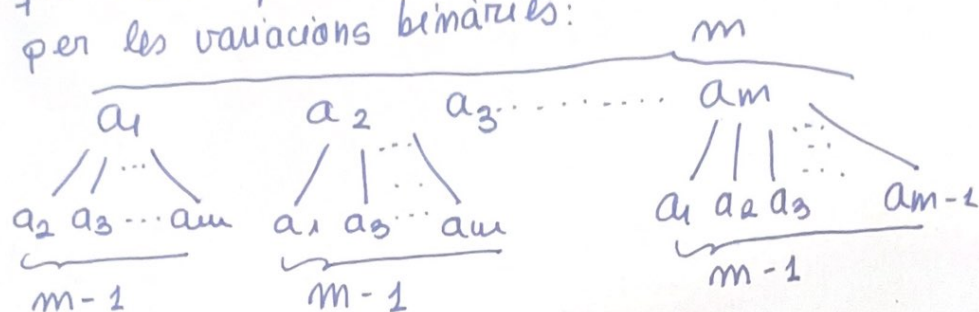 per les variacions binàries:
m
a1 a2 a3.......... am
a2 a3 ... am a1 a3 ... am a1 a2 a3 am-1
m-1 m-1 m-1